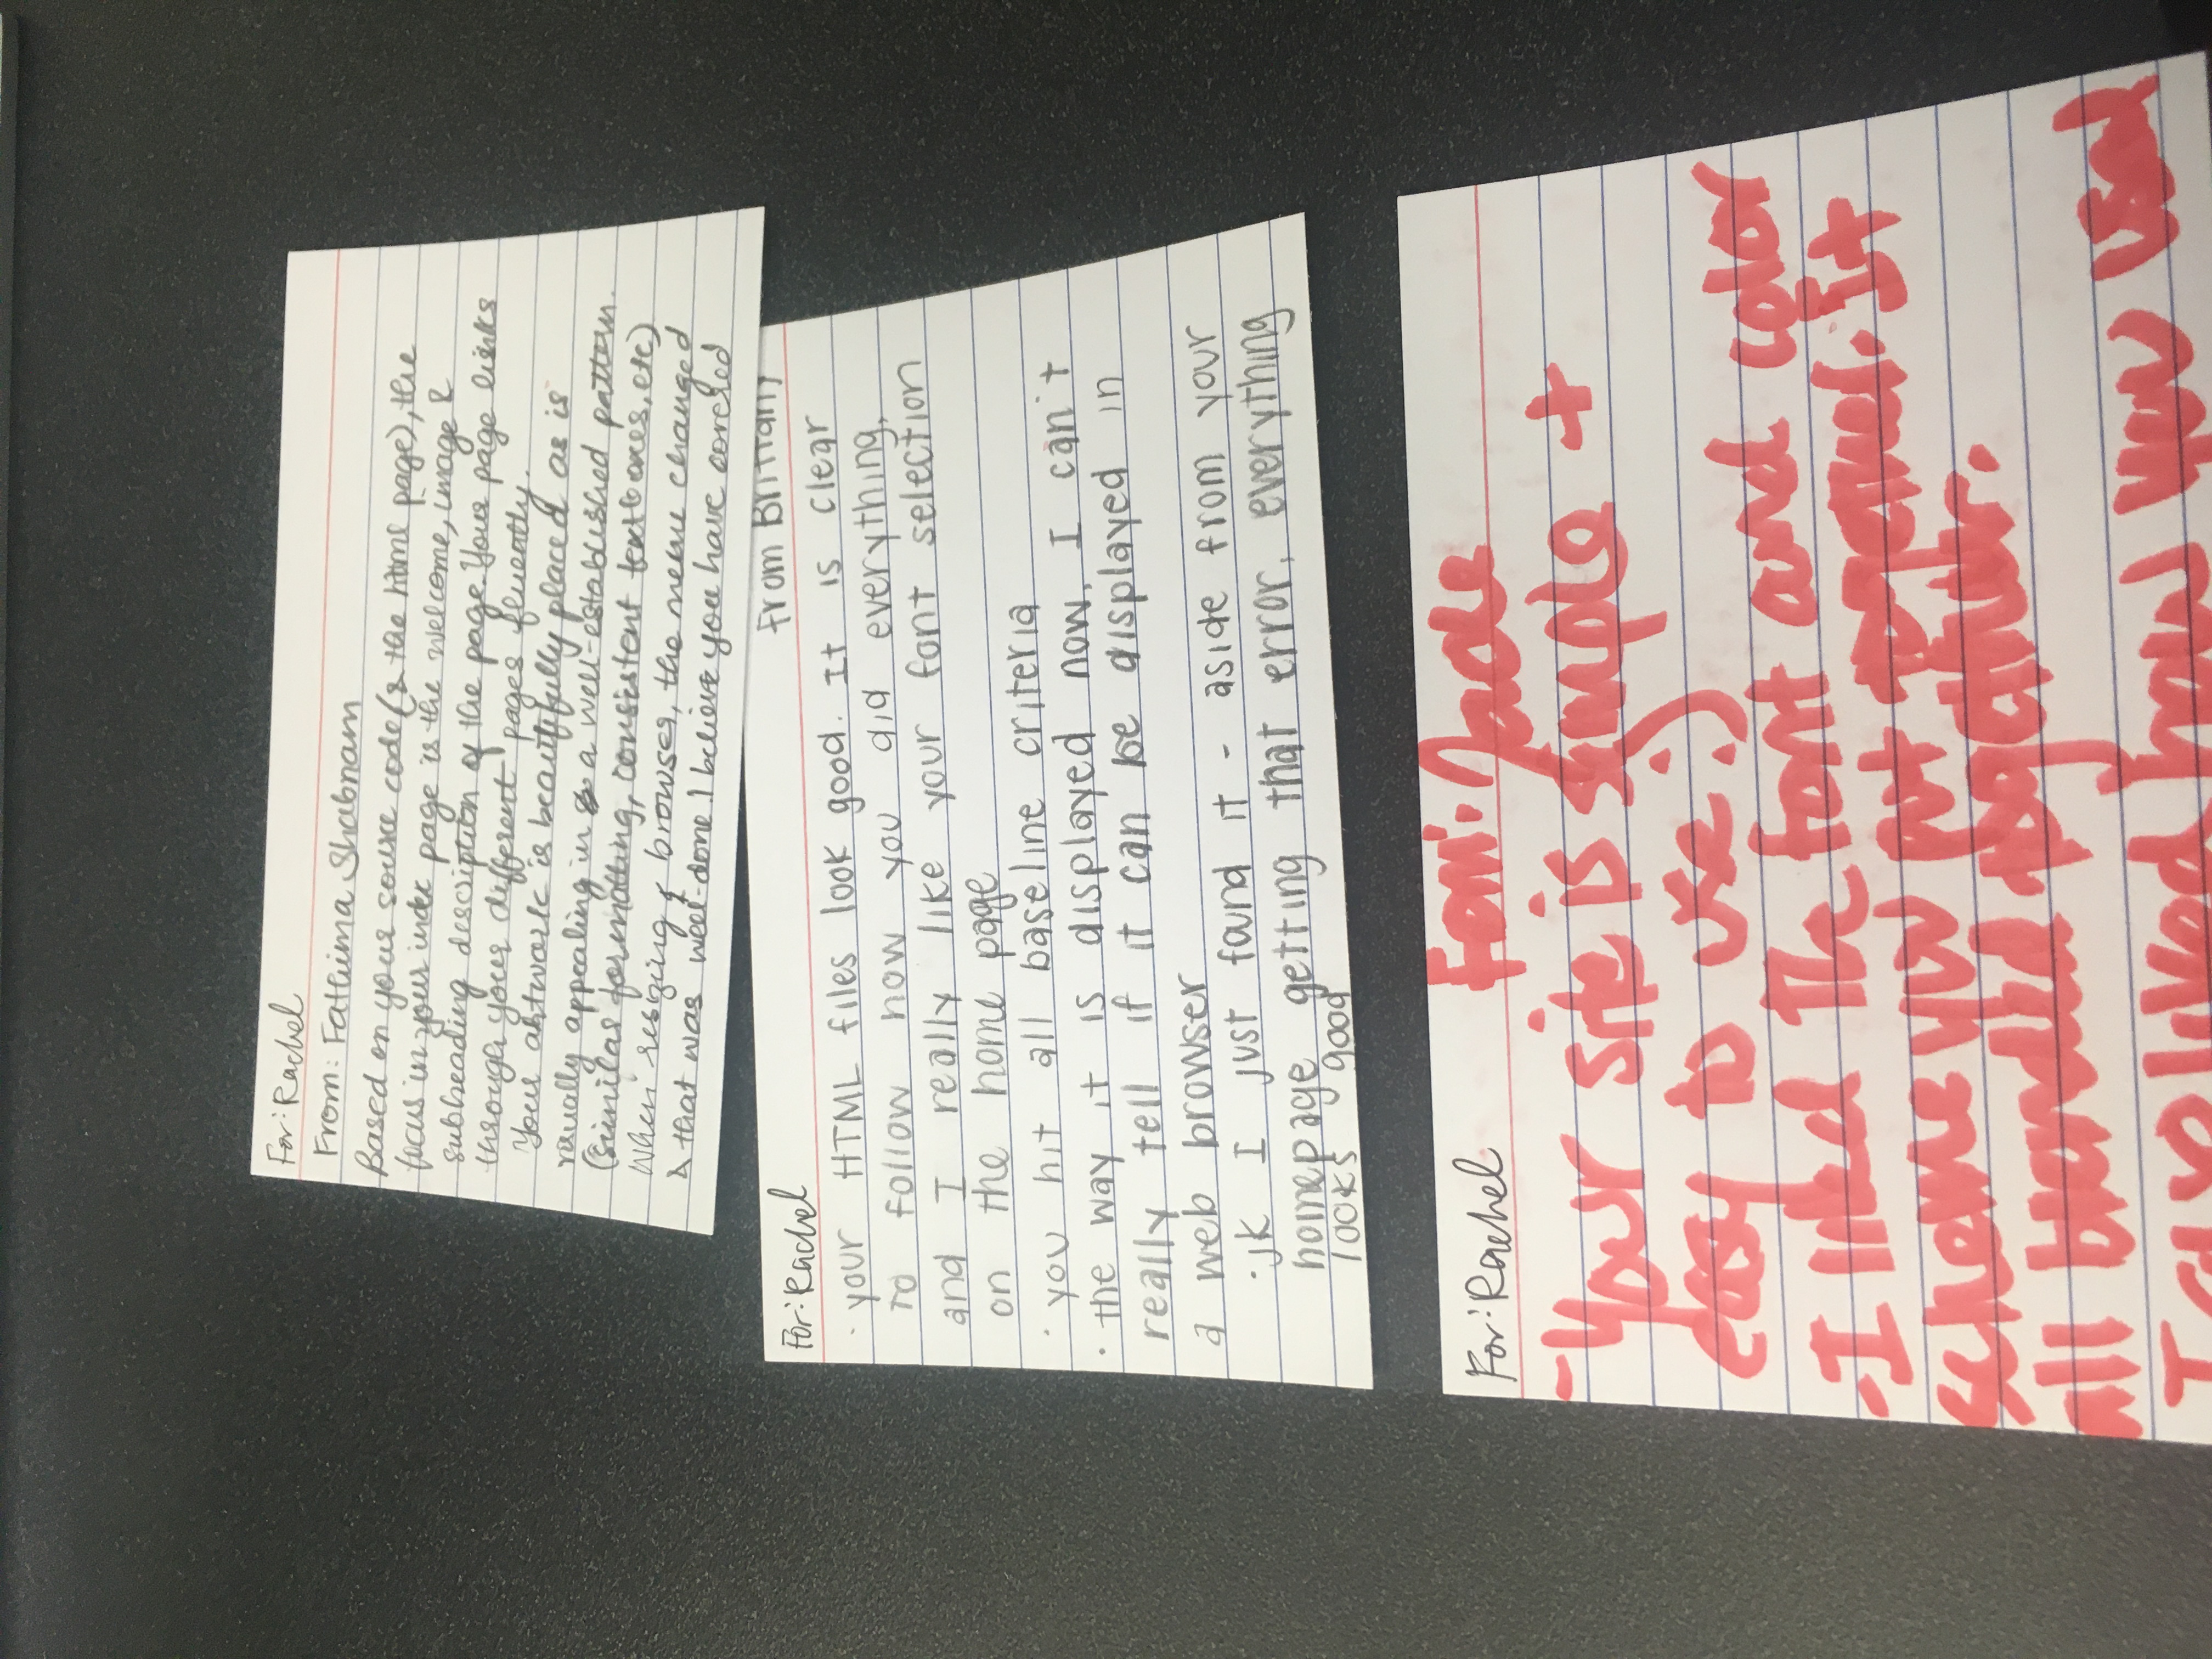 For: Rachel
From: Fathima Shabnam
Based on your source code (& the html page), the
focus in your index page is the welcome, image &
subheading description of the page. Your page links
through your different pages fluently.
Your artwork is beautifully placed as is
visually appealing in a well-established pattern.
(similar formatting, consistent textboxes, etc)
When resizing browser, the menu changed
& that was well-done. I believe you have covered
For: Rachel
from Brittany
· your HTML files look good. It is clear
to follow how you did everything,
and I really like your font selection
on the home page
· you hit all baseline criteria
· the way it is displayed now, I can't
really tell if it can be displayed in
a web browser
· jk I just found it - aside from your
homepage getting that error, everything
looks good
For: Rachel
From: Jade
- Your site is simple +
easy to use :)
- I liked the font and color
scheme you put together. It
all blended together.
I liked how you used